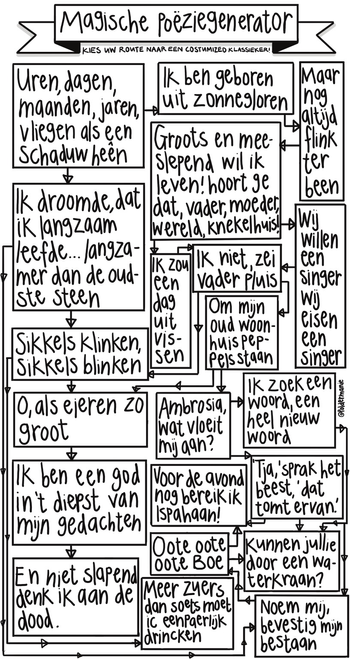 Magische Poëziegenerator
KIES UW ROUTE NAAR EEN COSTUMIZED KLASSIEKER!
Uren, dagen,
maanden, jaren,
vliegen als een
schaduw heên
Ik ben geboren
uit zonnegloren
Maar
nog
altijd
flink
ter
been
Groots en mee-
slepend wil ik
leven! hoort ge
dat, vader, moeder,
wereld, knekelhuis!
Ik droomde, dat
ik langzaam
leefde... langza-
mer dan de oud-
ste steen
Ik zou
een
dag
uit
vis-
sen
Ik niet, zei
vader pluis
Wij
willen
een
singer
wij
eisen
een
singer
Om mijn
oud woon-
huis pep-
pels staan
Sikkels klinken,
Sikkels blinken
O, als ejeren zo
groot
Ambrosia,
wat vloeit
mij aan?
Ik zoek een
woord, een
heel nieuw
woord
Ik ben een god
in 't diepst van
mijn gedachten
Voor de avond
nog bereik ik
Ispahaan!
Tja,' sprak het
beest, 'dat
tomt ervan.'
Oote oote
oote Boe
Kunnen jullie
door een wa-
terkraan?
En niet slapend
denk ik aan de
dood.
Meer zuers
dan soets moet
ic eenpaerlijk
drincken
Noem mij,
bevestig mijn
bestaan